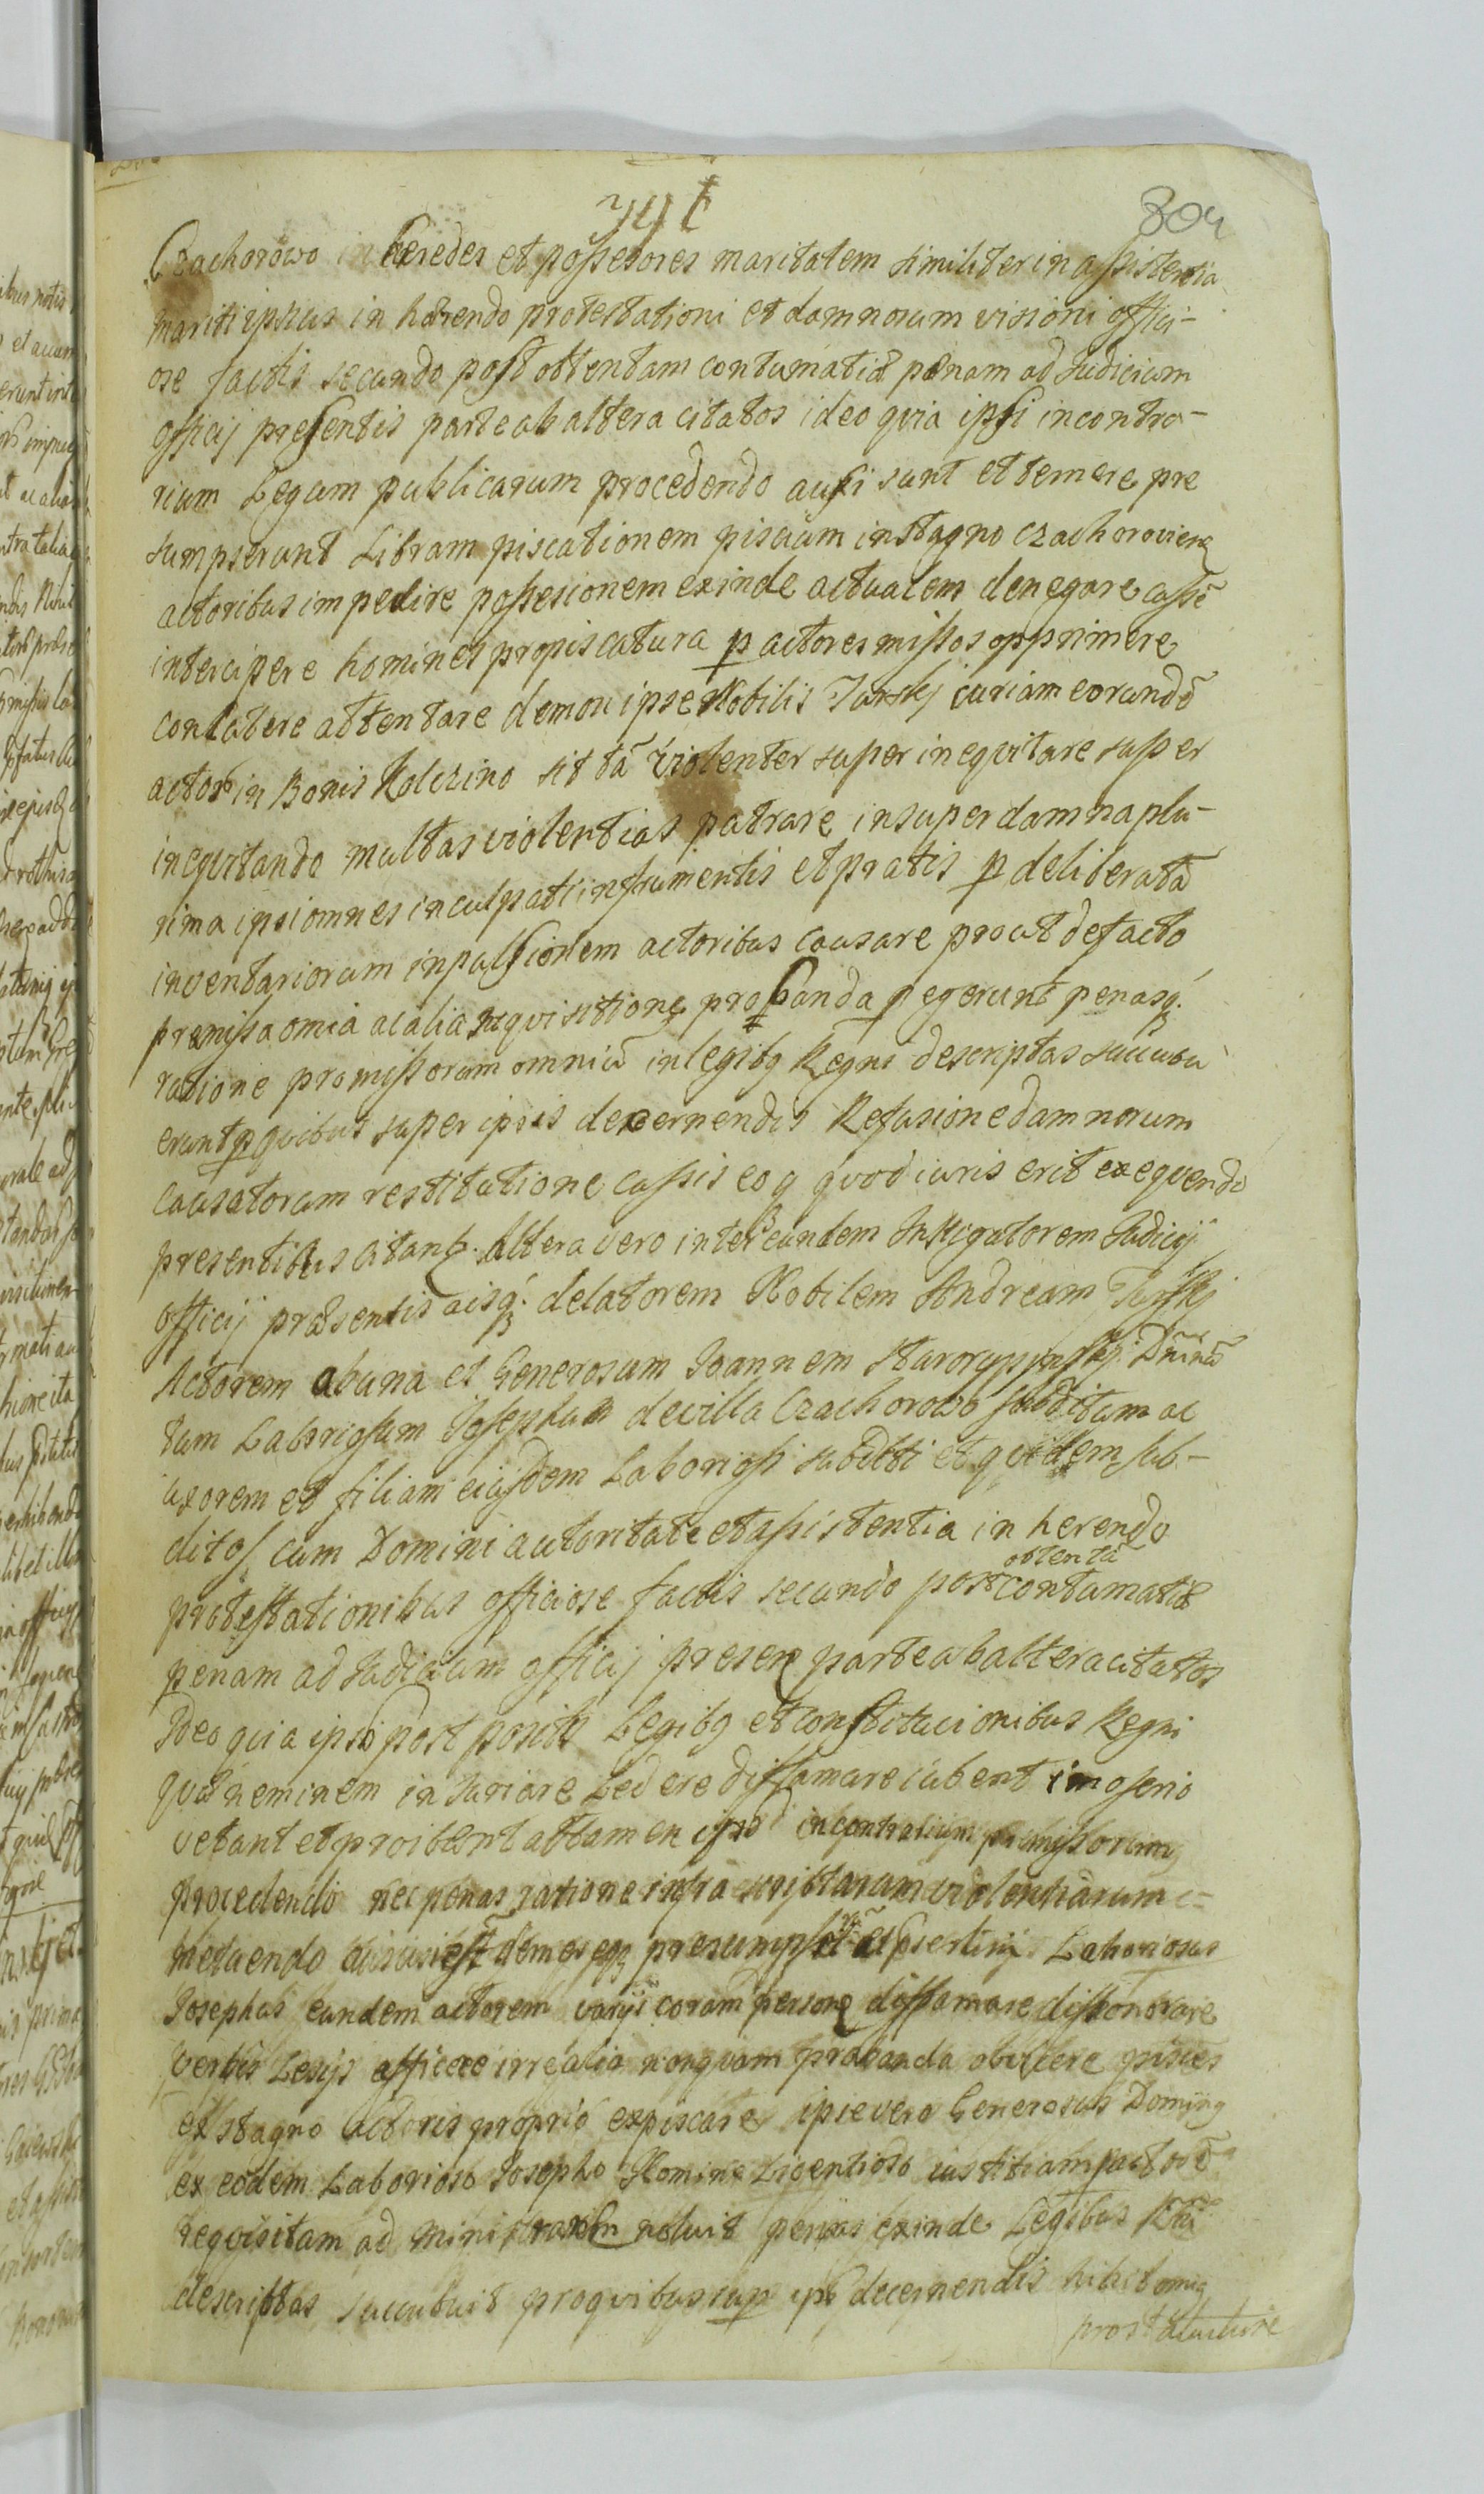 741
304
Czachorowo in heredes et possesores maritalem similiter in assistentia
mariti ipsius in hærendo protestationi et damnorum visioni offici-
ose factis secundo post obtentam contumatiæ pænam ad Judicium
officij presentis parte ab altera citatos ideo quia ipsi in contra-
rium Legum publicarum procedendo ausi sunt et temere pre
sumpserunt Libram piscationem piscium in stagno czachorovien
actoribus impedire possesionem exinde actualem denegare casse
intercipere homines pro piscatura p actores missos opprimere
conlabere attentare demou ipse Nobilis Jarskj curiam eorundē
actor in Bonis Kolczino sittā violenter super inequitare super
inequitando multas violentias patrare in super damna plu-
rima ipsi omnes inculpati in frumentis et pratis p deliberatā
inventariorum inpulsionem actoribus causare prout de facto
premissa omia ac alia requisitione probanda pegerunt penasq
ratione premissorum omniū in legibq Regni descriptas succubu
erunt p quibus super ipsis decernendis Refusione damnorum
causatorum restitutione cassis eoq quod iuris erit exequendo
presentibus citant. Altera vero inter eundem Instigatorem Judicij
officij præsentis aisq delatorem Nobilem Andream Jarskj
Actorem ab una et Generosum Joannem Starorypinskj
tum Laboriosum Josephum de villa Czachorowo subditum ac
uxorem et filiam eiusdem Laboriosi subditi et quidem sub-
ditos cum Domini autoritate et assistentia in herendo
protestationibus officiose factis secundo post obtentā contumatiæ
penam ad Judicium officij presen parte ab altera citatos
Ideo quia ipsi post positis Legibq et constitucionibus Regni
quæ neminem in Juriare Ledere diffamare iubent imo serio
vetant et proibent attamen ipsi in contrarium premissorum
procedendo nec penas ratione infra scriptarum violentiarum
metuendo ausus est presumpsit Laboriosus
Josephus eundem actorem varijs coram persone diffamare dishonorare
verbis Lesijs afficere irrealia nonquam probanda obiicere pisces
ex stagno actoris proprio expiscare ipse vero Generosus Dominq
ex eodem Laborioso Josepho Homine Licentioso iustitiam p actorē
requisitam ad ministrare noluit penas exinde Legibus
descriptas succubuit pro quibus sup ips decernendis